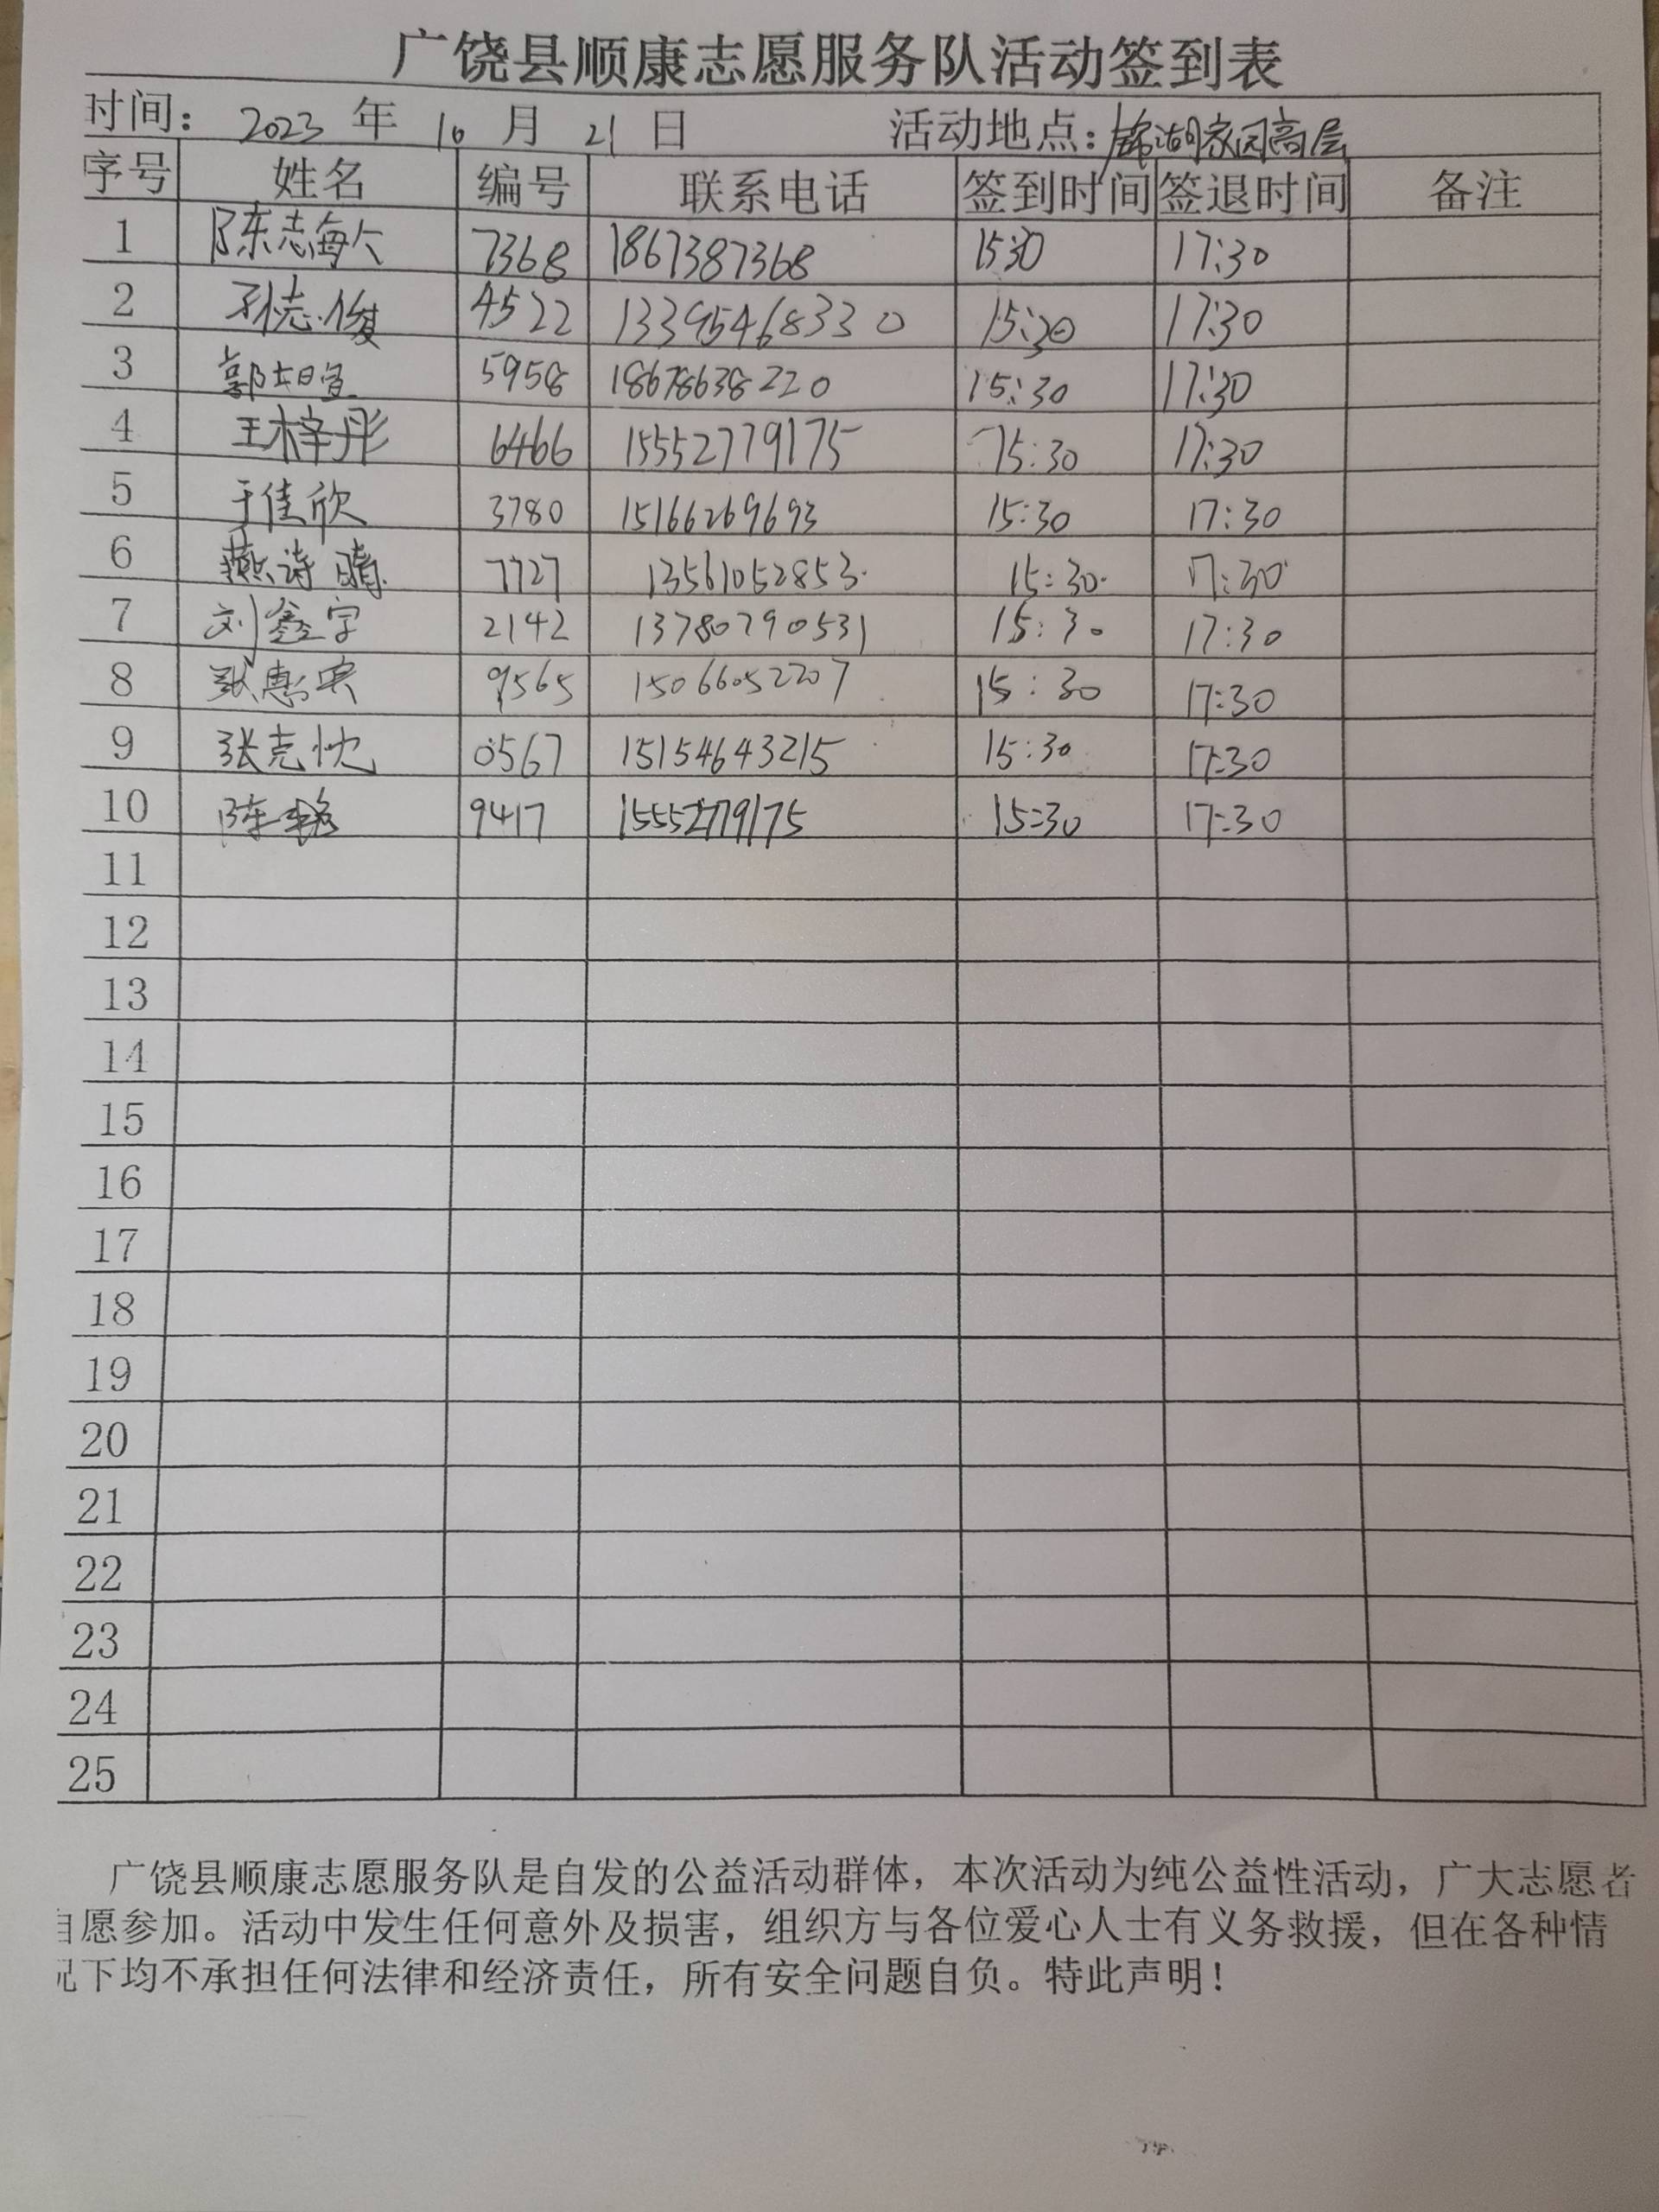 广饶县顺康志愿服务队活动签到表
时间: 2023 年 10 月 21 日 活动地点: 锦湖家园高层
序号 姓名 编号 联系电话 签到时间 签退时间 备注
1 陈志敏 7368 1867387368 15:30 17:30
2 孙志俊 4522 13395468330 15:30 17:30
3 郭 5958 18678638220 15:30 17:30
4 王梓彤 6466 15552779175 15:30 17:30
5 于佳欣 3780 15166269693 15:30 17:30
6 燕诗晴 7727 13561052853 15:30 17:30
7 刘鑫宇 2142 13780790531 15:30 17:30
8 张惠 9565 15066052207 15:30 17:30
9 张克忱 0567 15154643215 15:30 17:30
10 陈 9417 15552779175 15:30 17:30
11
12
13
14
15
16
17
18
19
20
21
22
23
24
25
广饶县顺康志愿服务队是自发的公益活动群体，本次活动为纯公益性活动，广大志愿者
自愿参加。活动中发生任何意外及损害，组织方与各位爱心人士有义务救援，但在各种情
况下均不承担任何法律和经济责任，所有安全问题自负。特此声明！